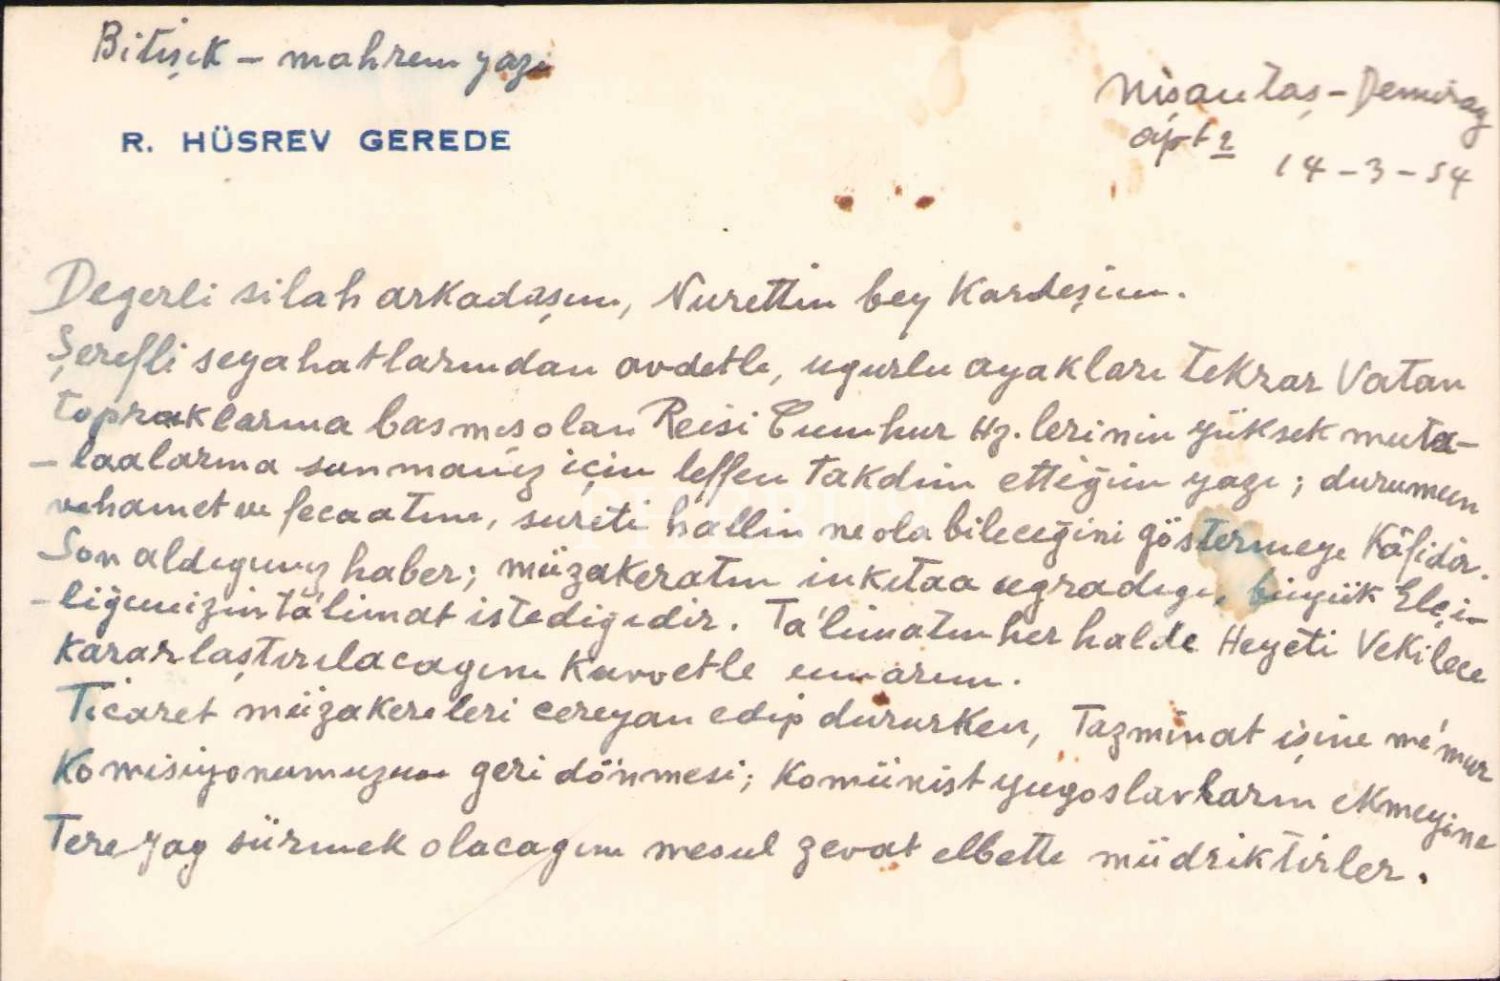 Bitişik – mahrem yazı
R. HÜSREV GEREDE
Nişantaş – Demirağ
apt 2
14 – 3 – 54
Degerli silah arkadaşım, Nurettin bey Kardeşim.
Şerefli seyahatlarından avdetle, ugurlu ayakları tekrar Vatan
topraklarına basmıs olan Reisi Cumhur Hz. lerinin yüksek muta–
– laalarına sunmanız için leffen takdim ettiğim yazı; durumun
vehamet ve fecaatını, sureti hallin ne ola bileceğini göstermeye Kâfidir.
Son aldıgımız haber; müzakeratın inkıtaa ugradıgı, büyük Elçi–
– liğimizin tâ'limat istediğidir. Ta'limatın her halde Heyeti Vekilece
kararlaştırılacagını kuvvetle umarım.
Ticaret müzakereleri cereyan edip dururken, Tazminat işine me'mur
Komisiyonumuzun geri dönmesi; Komünist yugoslavların ekmeyine
Tere yag sürmek olacagını mesul zevat elbette müdriktirler.